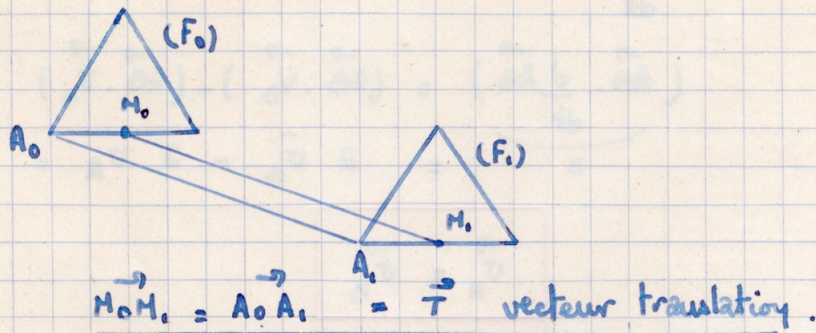 (F₀)
M₀
A₀
(F₁)
M₁
A₁
M₀M₁ = A₀A₁ = T vecteur translation.